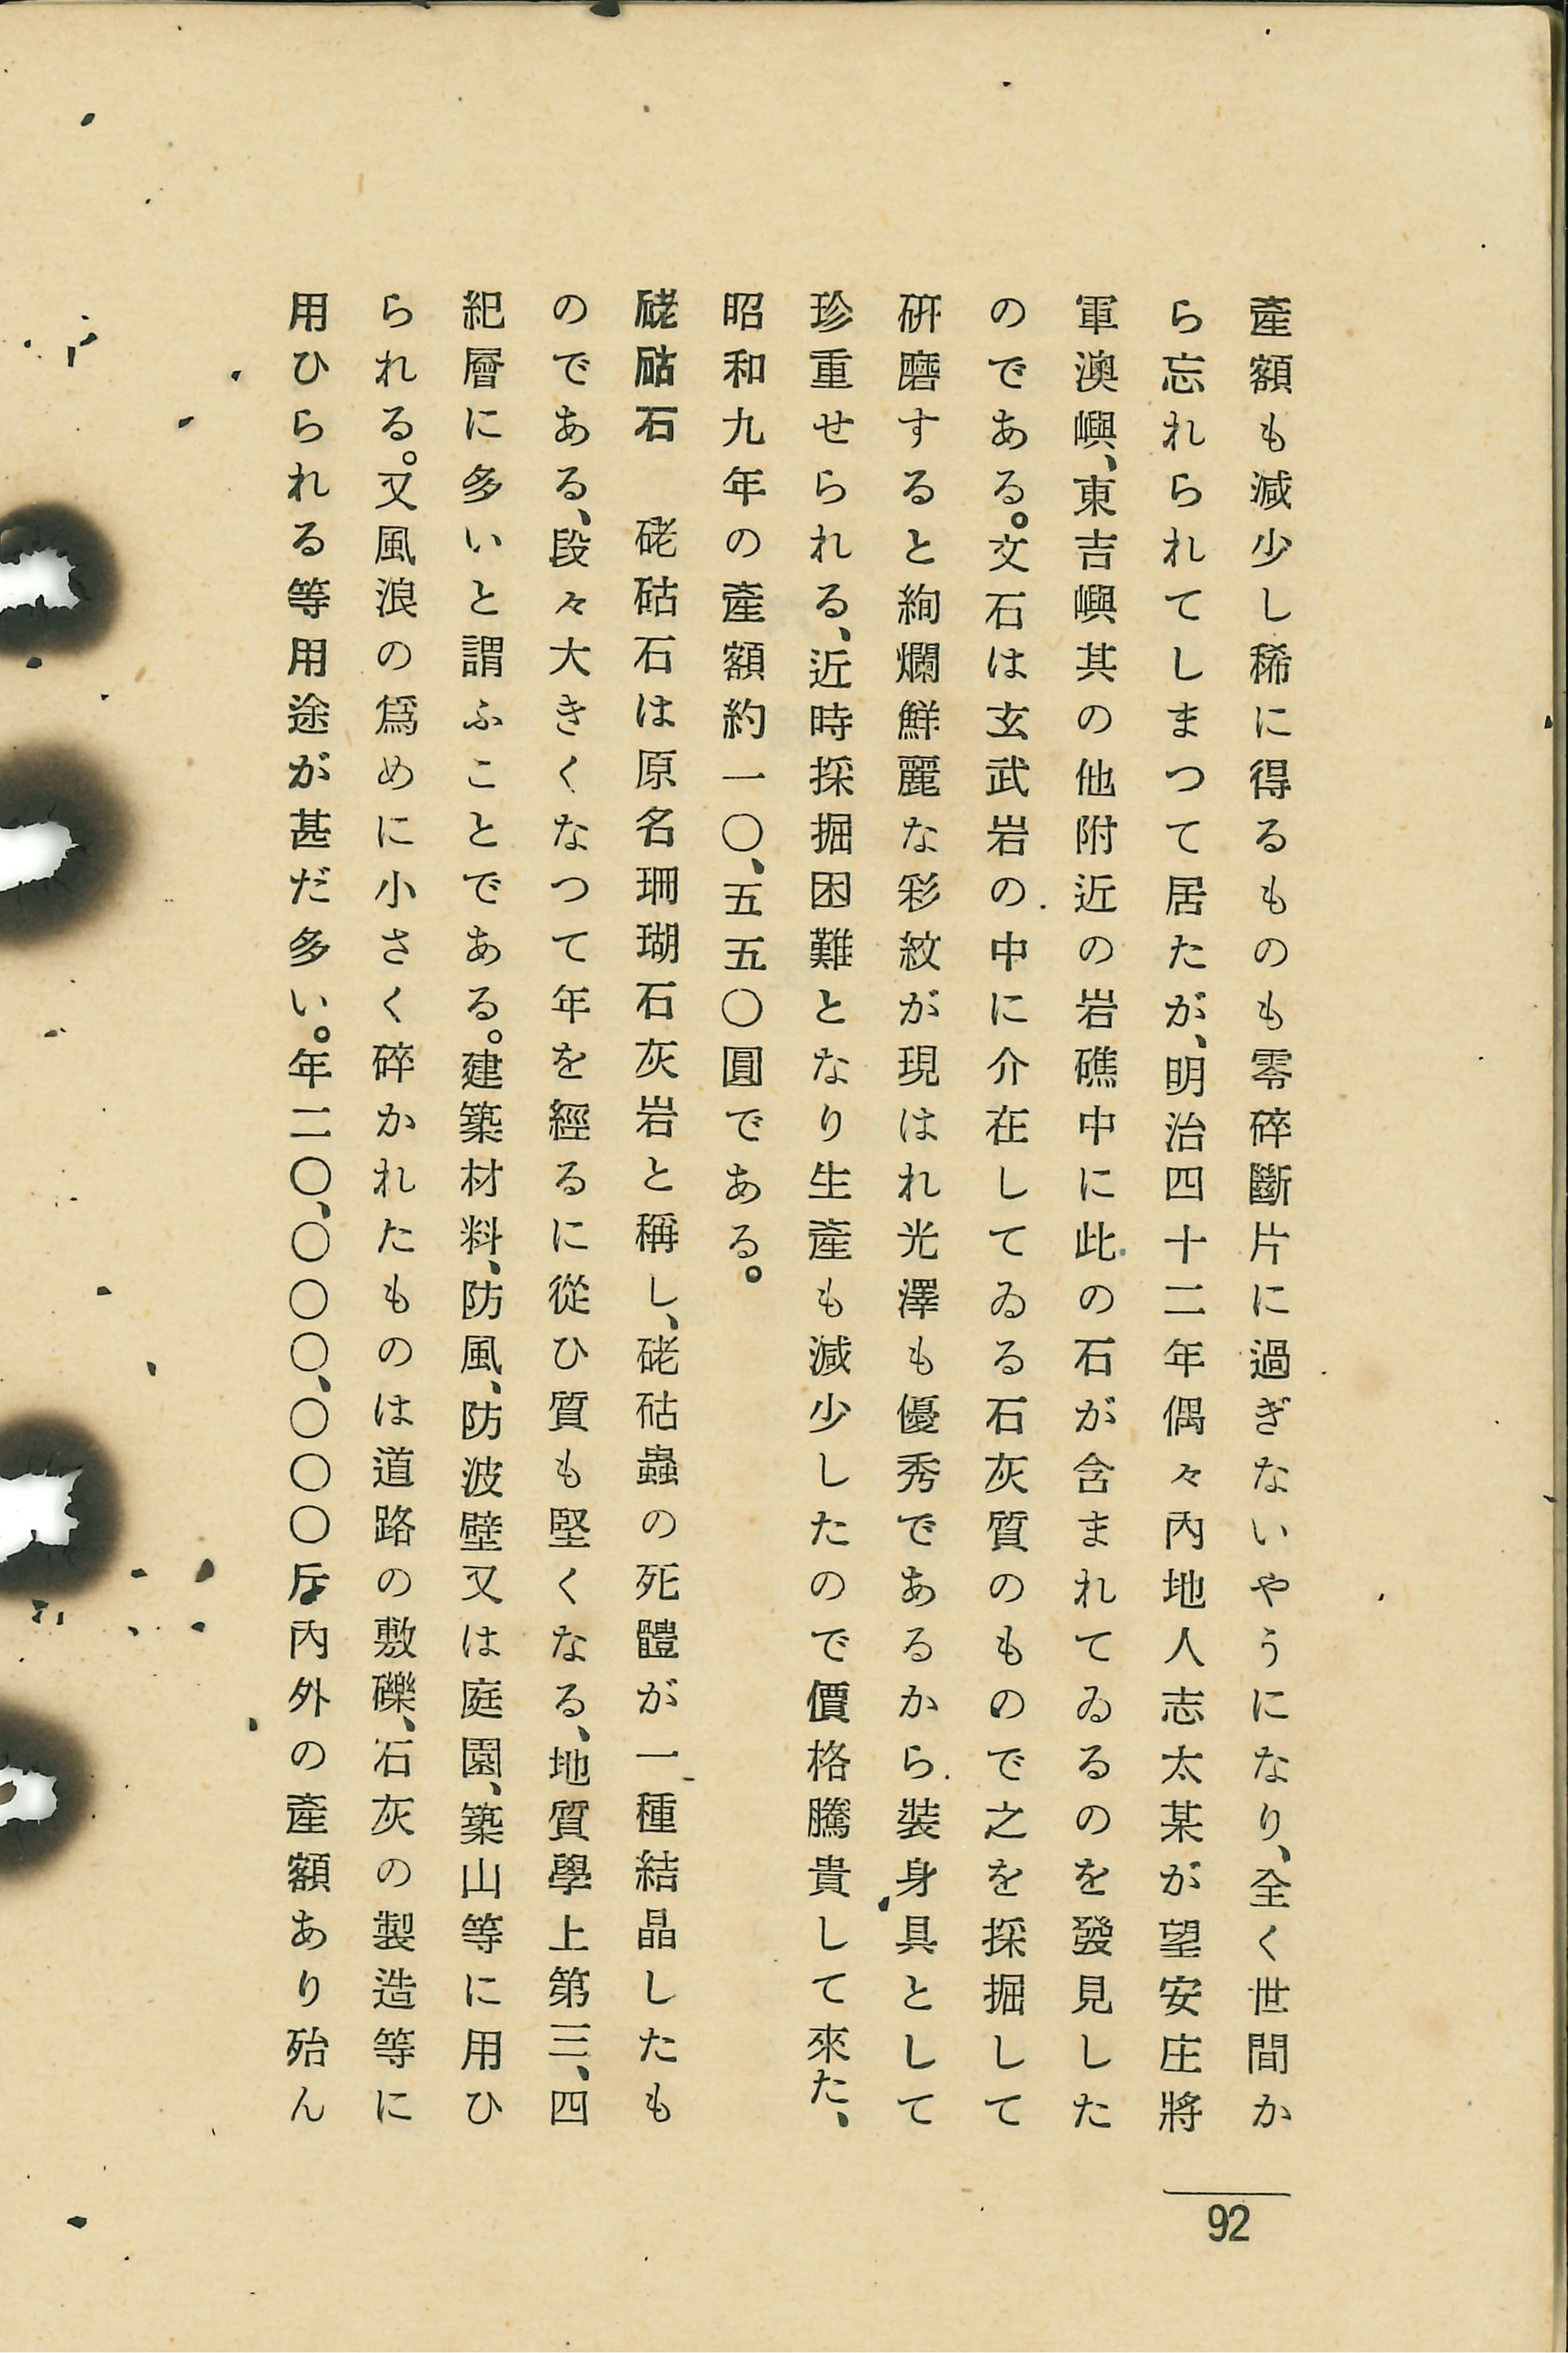 産額も減少し稀に得るものも零碎斷片に過ぎないやうになり、全く世間か
ら忘れられてしまつて居たが、明治四十二年偶々內地人志太某が望安庄將
軍澳嶼、東吉嶼其の他附近の岩礁中に此の石が含まれてゐるのを發見した
のである。文石は玄武岩の中に介在してゐる石灰質のもので之を採掘して
研磨すると絢爛鮮麗な彩紋が現はれ光澤も優秀であるから裝身具として
珍重せられる、近時採掘困難となり生産も減少したので價格騰貴して來た、
昭和九年の産額約一〇、五五〇圓である。
硓𥑮石　硓𥑮石は原名珊瑚石灰岩と稱し、硓𥑮蟲の死體が一種結晶したも
のである、段々大きくなつて年を經るに從ひ質も堅くなる、地質學上第三、四
紀層に多いと謂ふことである。建築材料、防風、防波壁又は庭園、築山等に用ひ
られる。又風浪の爲めに小さく碎かれたものは道路の敷礫、石灰の製造等に
用ひられる等用途が甚だ多い。年二〇、〇〇〇、〇〇〇斤內外の産額あり殆ん
92